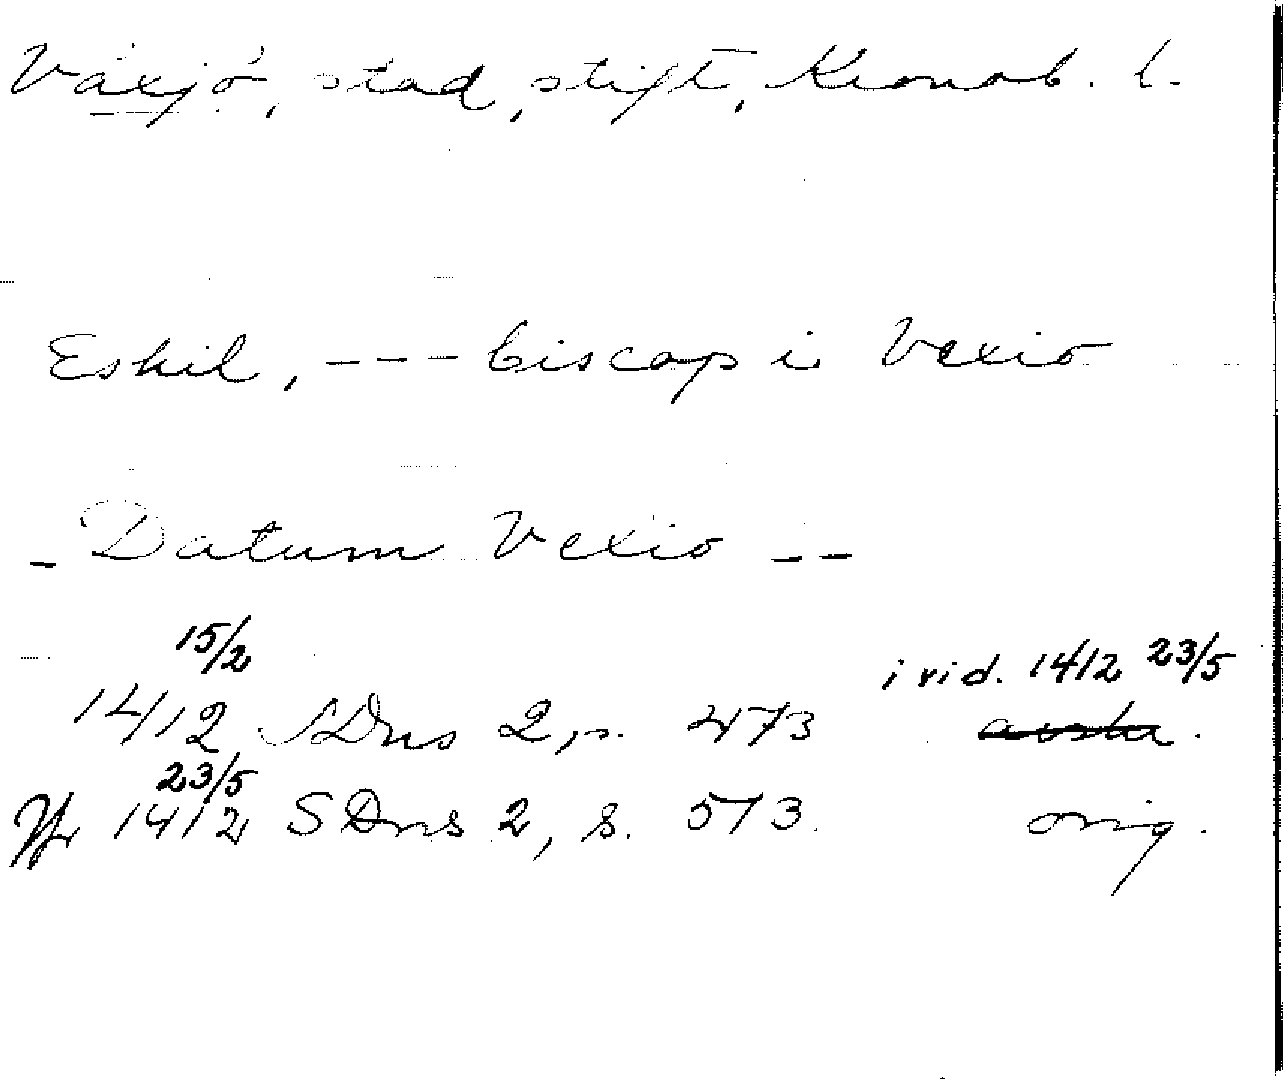 Växjö, stad, stift, Kronob. l.
Eskil, --- biscop i Vexio
- Datum Vexio --
15/2 i vid. 1412 23/5
1412 SDns 2, s. 473
23/5
1412 SDns 2, s. 573. orig.